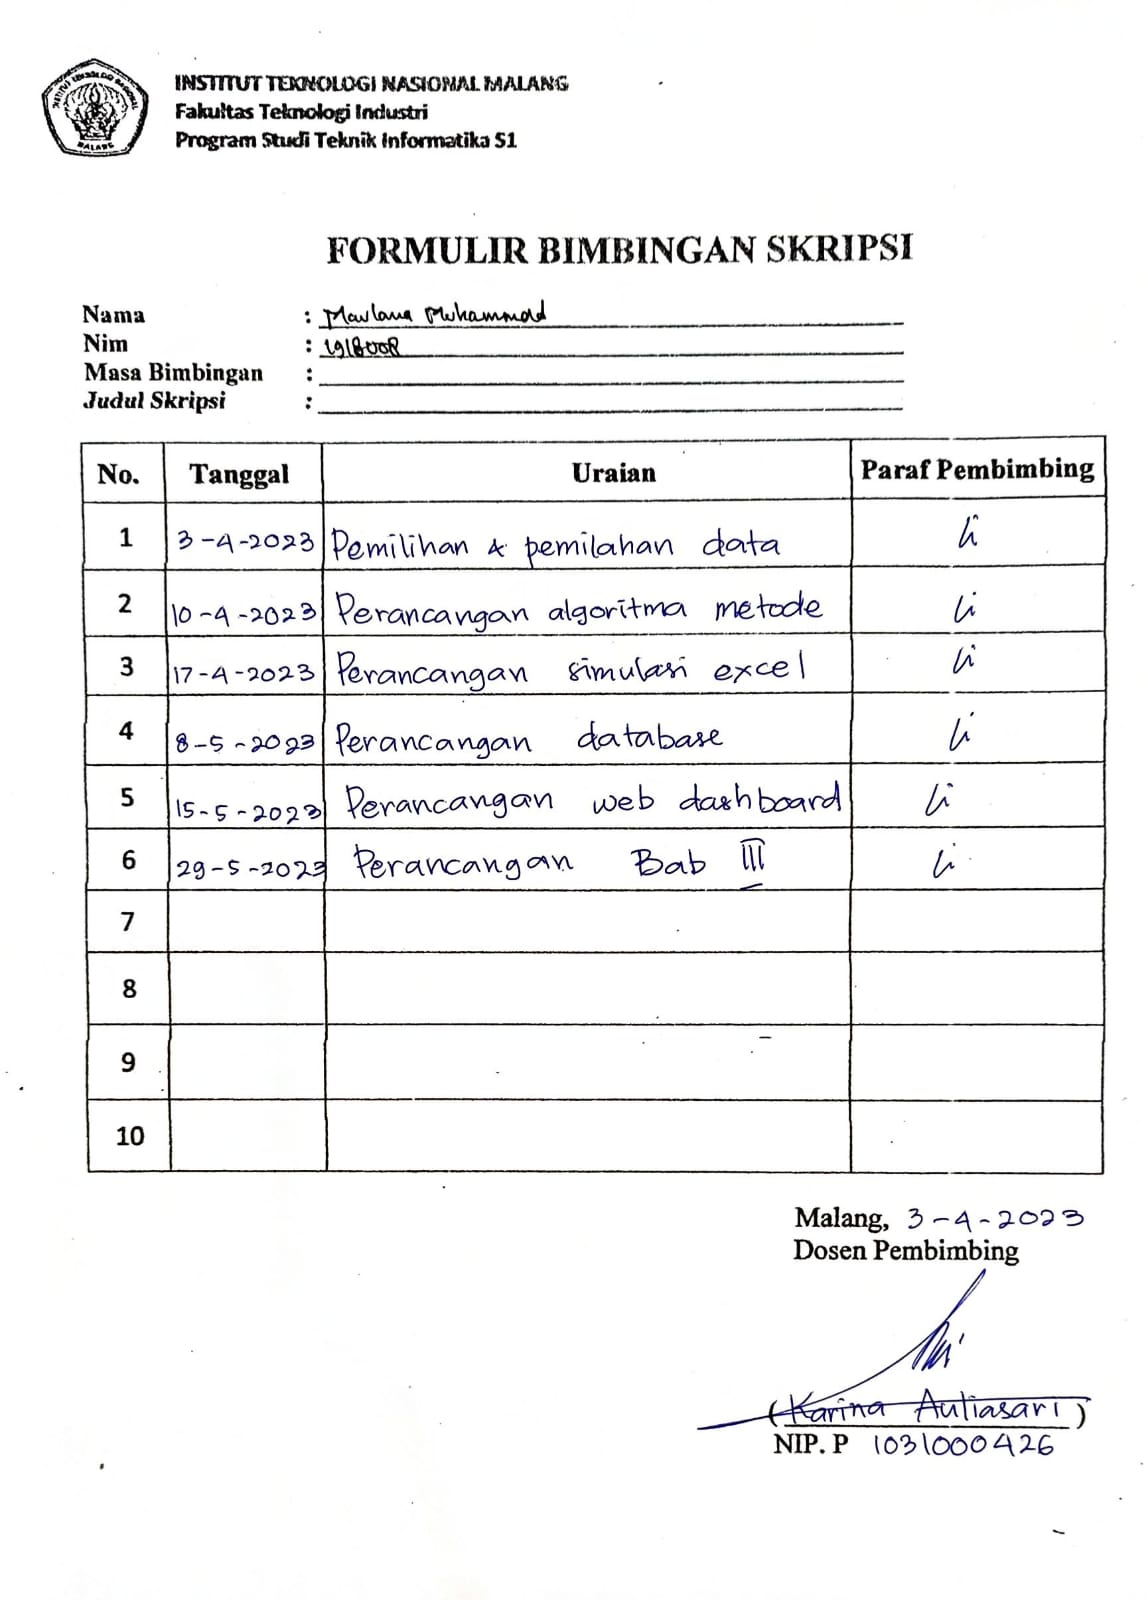 INSTITUT TEKNOLOGI NASIONAL MALANG
Fakultas Teknologi Industri
Program Studi Teknik Informatika S1
INSTITUT TEKNOLOGI NASIONAL
MALANG
FORMULIR BIMBINGAN SKRIPSI
Nama : Maulana Muhammad
Nim : 1918008
Masa Bimbingan :
Judul Skripsi :
No. Tanggal Uraian Paraf Pembimbing
1 3-4-2023 Pemilihan & pemilahan data
2 10-4-2023 Perancangan algoritma metode
3 17-4-2023 Perancangan simulasi excel
4 8-5-2023 Perancangan database
5 15-5-2023 Perancangan web dashboard
6 29-5-2023 Perancangan Bab III
7
8
9
10
Malang, 3-4-2023
Dosen Pembimbing
(Karina Auliasari)
NIP. P 1031000426